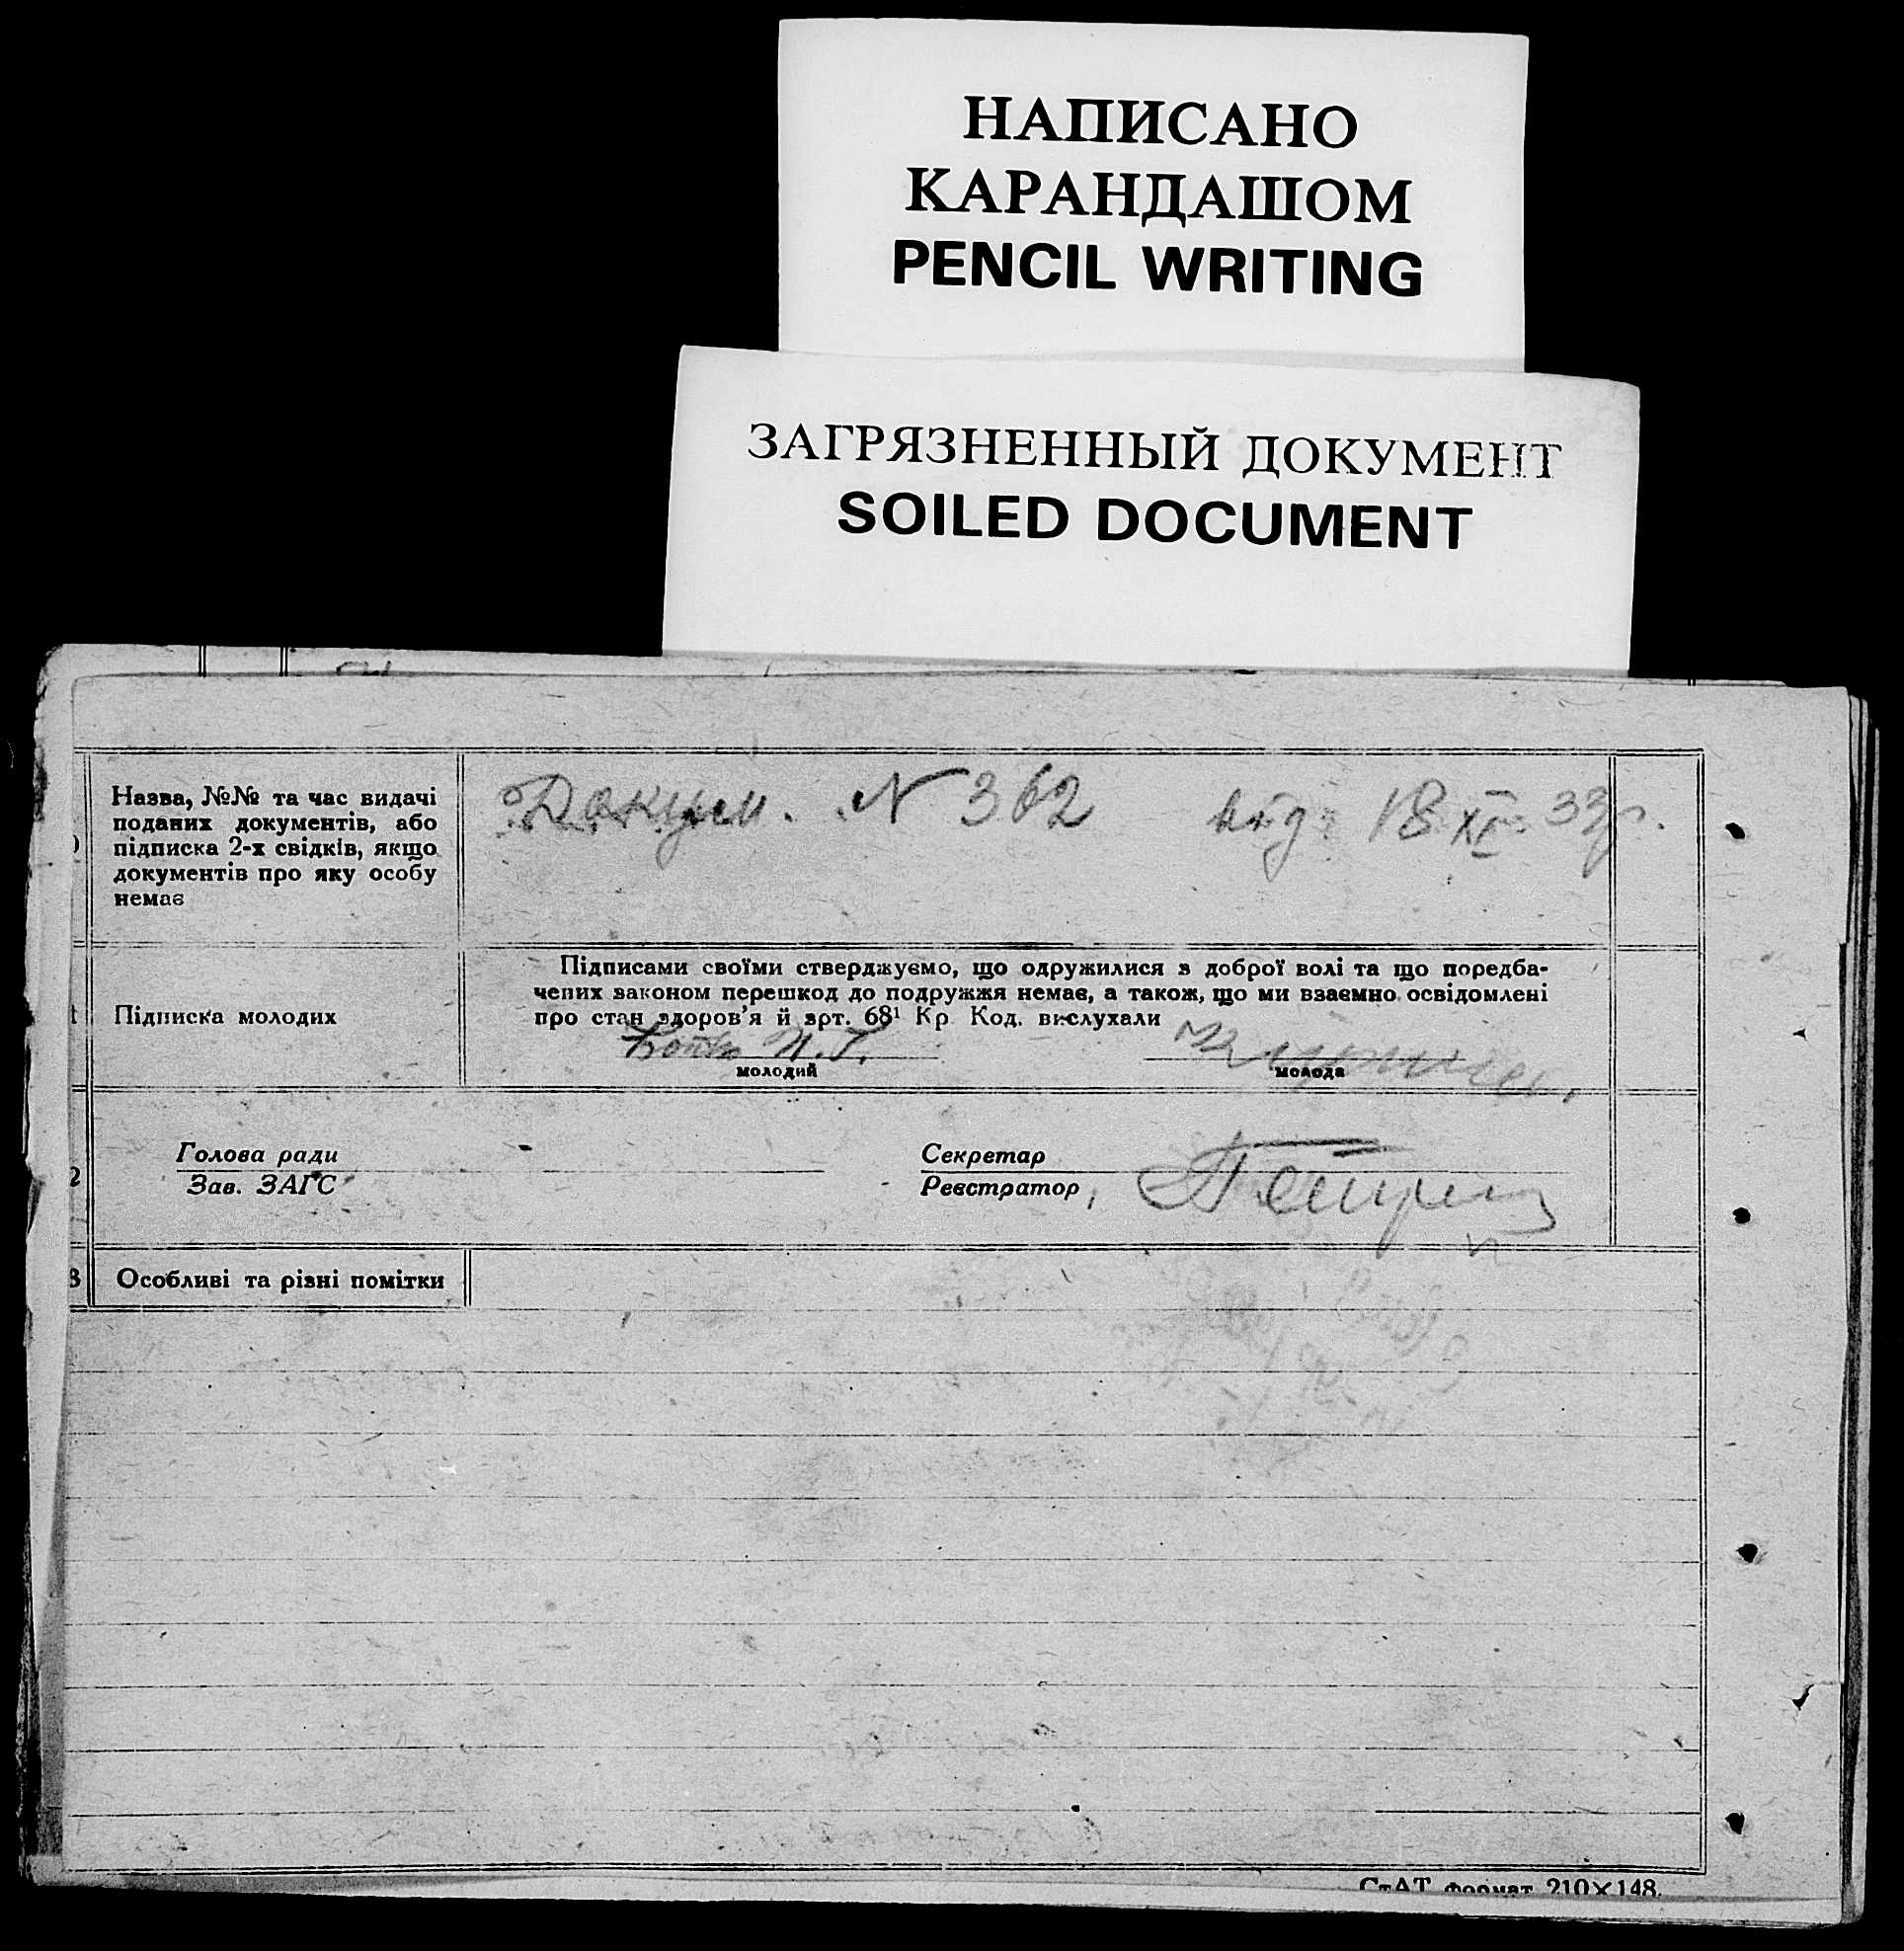 НАПИСАНО
КАРАНДАШОМ
PENCIL WRITING
ЗАГРЯЗНЕННЫЙ ДОКУМЕНТ
SOILED DOCUMENT
Назва, №№ та час видачі
поданих документів, або
підписка 2-х свідків, якщо
документів про яку особу
немає
Докум. N 362 від 18 XI 33р.
Підписка молодих
Підписами своїми стверджуємо, що одружилися з доброї волі та що передба-
чених законом перешкод до подружжя немає, а також, що ми взаємно освідомлені
про стан здоров'я й арт. 68¹ Кр. Код. вислухали
молодий
молода
Голова ради
Зав. ЗАГС
Секретар
Реєстратор
2
3 Особливі та різні помітки
СтАТ формат 210×148.